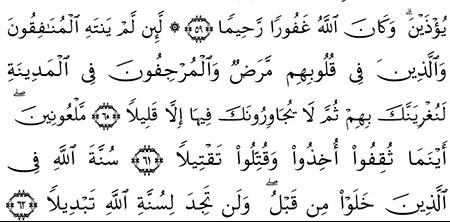 يُؤْذَيْنَ ۗ وَكَانَ ٱللَّهُ غَفُورًا رَّحِيمًا ﴿٥٩﴾ ۞ لَّئِن لَّمْ يَنتَهِ ٱلْمُنَـٰفِقُونَ
وَٱلَّذِينَ فِى قُلُوبِهِم مَّرَضٌ وَٱلْمُرْجِفُونَ فِى ٱلْمَدِينَةِ
لَنُغْرِيَنَّكَ بِهِمْ ثُمَّ لَا يُجَاوِرُونَكَ فِيهَآ إِلَّا قَلِيلًا ﴿٦٠﴾ مَّلْعُونِينَ ۖ
أَيْنَمَا ثُقِفُوٓا۟ أُخِذُوا۟ وَقُتِّلُوا۟ تَقْتِيلًا ﴿٦١﴾ سُنَّةَ ٱللَّهِ فِى
ٱلَّذِينَ خَلَوْا۟ مِن قَبْلُ ۖ وَلَن تَجِدَ لِسُنَّةِ ٱللَّهِ تَبْدِيلًا ﴿٦٢﴾